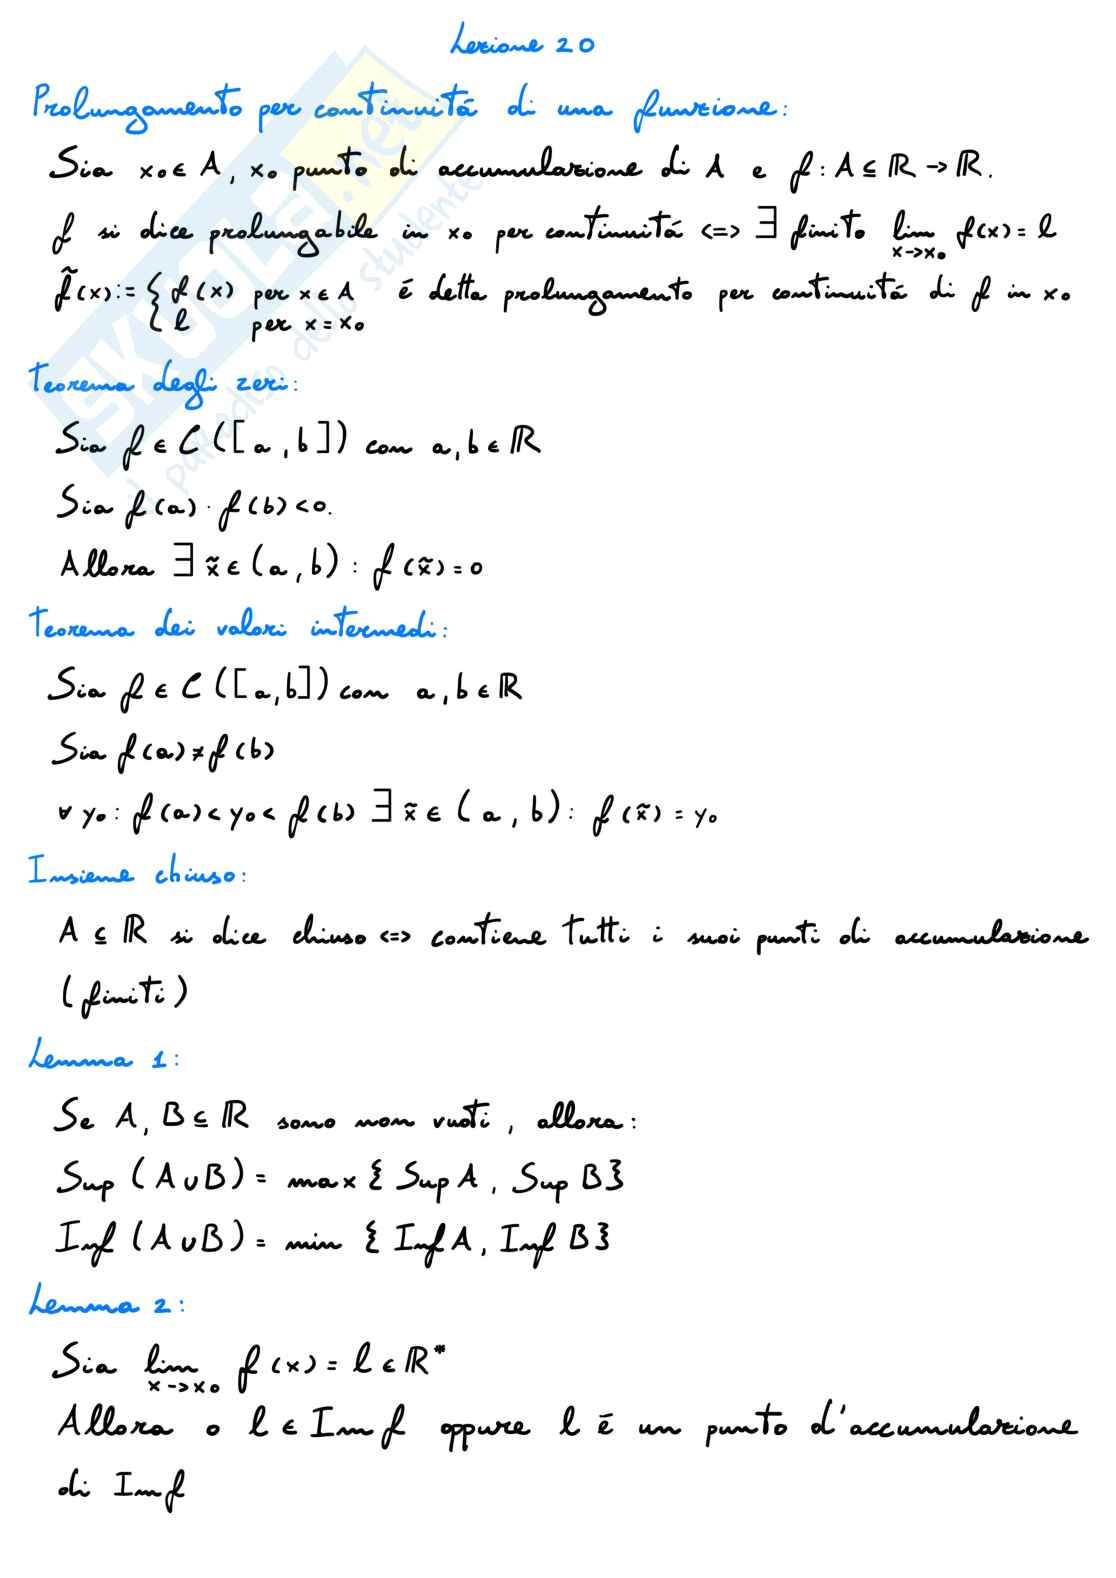 Lezione 20
Prolungamento per continuitá di una funzione:
Sia x₀ ∈ A, x₀ punto di accumulazione di A e f: A ⊆ ℝ → ℝ.
f si dice prolungabile in x₀ per continuitá <=> ∃ finito lim x->x₀ f(x) = l
f̃(x) := { f(x) per x ∈ A é detta prolungamento per continuitá di f in x₀
{ l per x = x₀
Teorema degli zeri:
Sia f ∈ C([a, b]) con a, b ∈ ℝ
Sia f(a) · f(b) < 0.
Allora ∃ x̃ ∈ (a, b) : f(x̃) = 0
Teorema dei valori intermedi:
Sia f ∈ C([a, b]) con a, b ∈ ℝ
Sia f(a) ≠ f(b)
∀ y₀ : f(a) < y₀ < f(b) ∃ x̃ ∈ (a, b) : f(x̃) = y₀
Insieme chiuso:
A ⊆ ℝ si dice chiuso <=> contiene tutti i suoi punti di accumulazione
(finiti)
Lemma 1:
Se A, B ⊆ ℝ sono non vuoti, allora:
Sup (A ∪ B) = max { Sup A, Sup B }
Inf (A ∪ B) = min { Inf A, Inf B }
Lemma 2:
Sia lim x->x₀ f(x) = l ∈ ℝ*
Allora o l ∈ Im f oppure l é un punto d'accumulazione
di Im f
SKUOLA.net
il paradiso dello studente